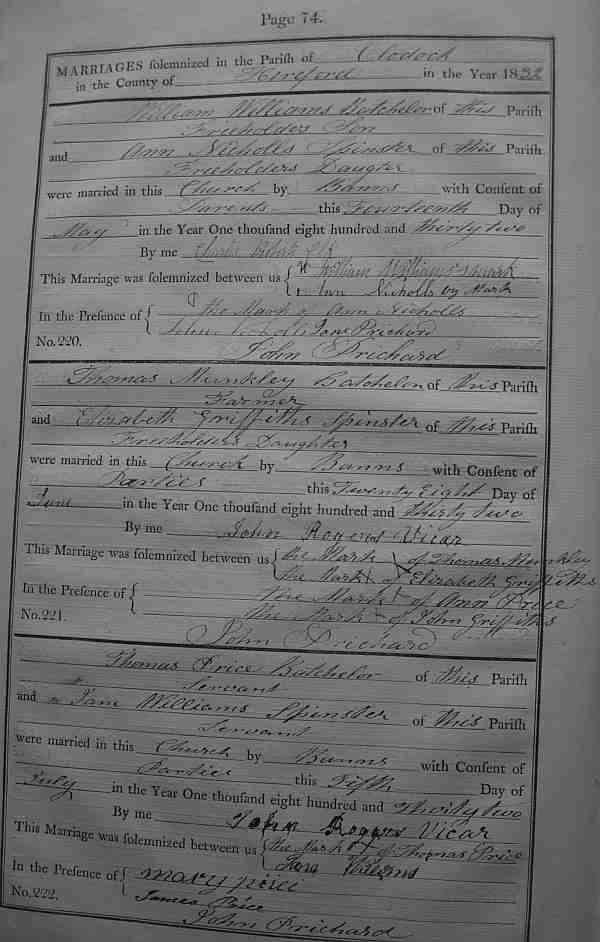 Page 74.
MARRIAGES solemnized in the Parish of Clodock
in the County of Hereford in the Year 1832
William Williams Batchelor of this Parish
Freeholders Son
and Ann Nicholls Spinster of this Parish
Freeholders Daugter
were married in this Church by Banns with Consent of
Parents this Fourteenth Day of
May in the Year One thousand eight hundred and thirty two
By me Charles
This Marriage was solemnized between us { William Williams's mark
Ann Nicholls by Mark
In the Presence of { the Mark of Ann Nicholls
John Nicholls Jane Prichard
No. 220. John Prichard
Thomas Munkley Batchelor of this Parish
Farmer
and Elizabeth Griffiths Spinster of this Parish
Freeholders Daughter
were married in this Church by Banns with Consent of
Parties this Twenty Eight Day of
June in the Year One thousand eight hundred and Thirty two
By me John Rogers Vicar
This Marriage was solemnized between us { the Mark of Thomas Munkley
the Mark of Elizabeth Griffiths
In the Presence of { the Mark of Ann Price
the Mark of John Griffiths
No. 221. John Prichard
Thomas Price Batchelor of this Parish
Servant
and Jam Williams Spinster of this Parish
Servant
were married in this Church by Banns with Consent of
Parties this Fifth Day of
July in the Year One thousand eight hundred and Thirty two
By me John Rogers Vicar
This Marriage was solemnized between us { the Mark of Thomas Price
In the Presence of { mary
James Price
No. 222. John Prichard